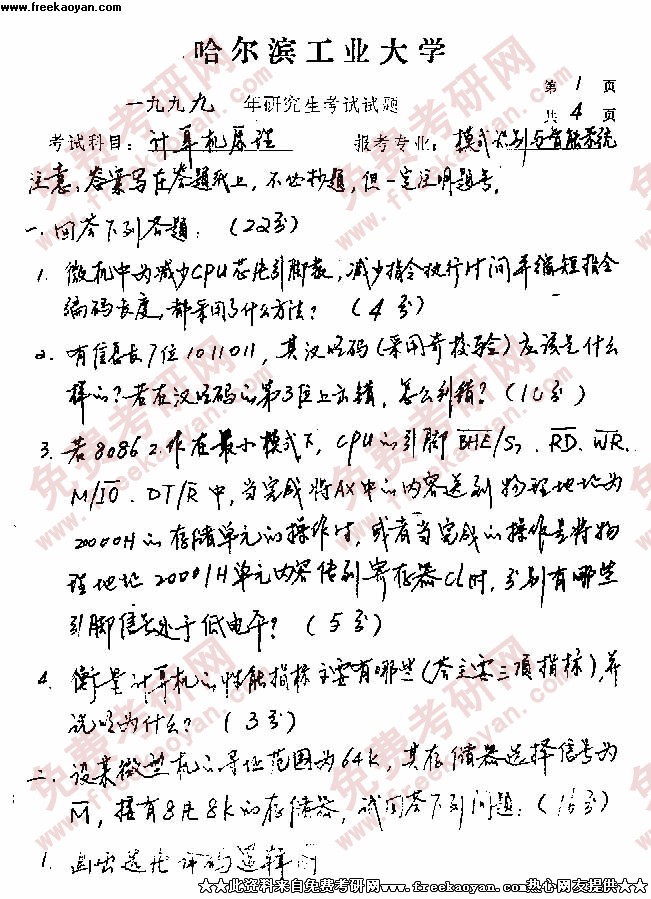 www.freekaoyan.com
哈尔滨工业大学
第1页
一九九九 年研究生考试试题
共4页
考试科目：计算机原理 报考专业：模式识别与智能系统
注意：答案写在答题纸上，不必抄题，但一定注明题号。
一.回答下列各题：（22分）
1. 微机中为减少CPU芯片引脚数，减少指令执行时间并缩短指令
编码长度，都采用了什么方法？（4分）
2. 有信息长7位1011011，其汉明码（采用奇校验）应该是什么
样的？若在汉明码的第3位上出错，怎么纠错？（10分）
3. 若8086工作在最小模式下，CPU的引脚B̅H̅E̅/S₇、R̅D̅、W̅R̅、
M/I̅O̅、DT/R̅中，当完成将AX中的内容送到物理地址为
20000H的存储单元的操作时，或者当完成的操作是将物
理地址20001H单元内容传到寄存器CL时，分别有哪些
引脚信号处于低电平？（5分）
4. 衡量计算机的性能指标主要有哪些（答主要三项指标），并
说明为什么？（3分）
二. 设某微型机的寻址范围为64k，其存储器选择信号为
M̅，接有8片8k的存储器，试回答下列问题：（16分）
1. 画出选片译码逻辑图
★★此资料来自免费考研网www.freekaoyan.com热心网友提供★★
免费考研网
www.freekaoyan.com